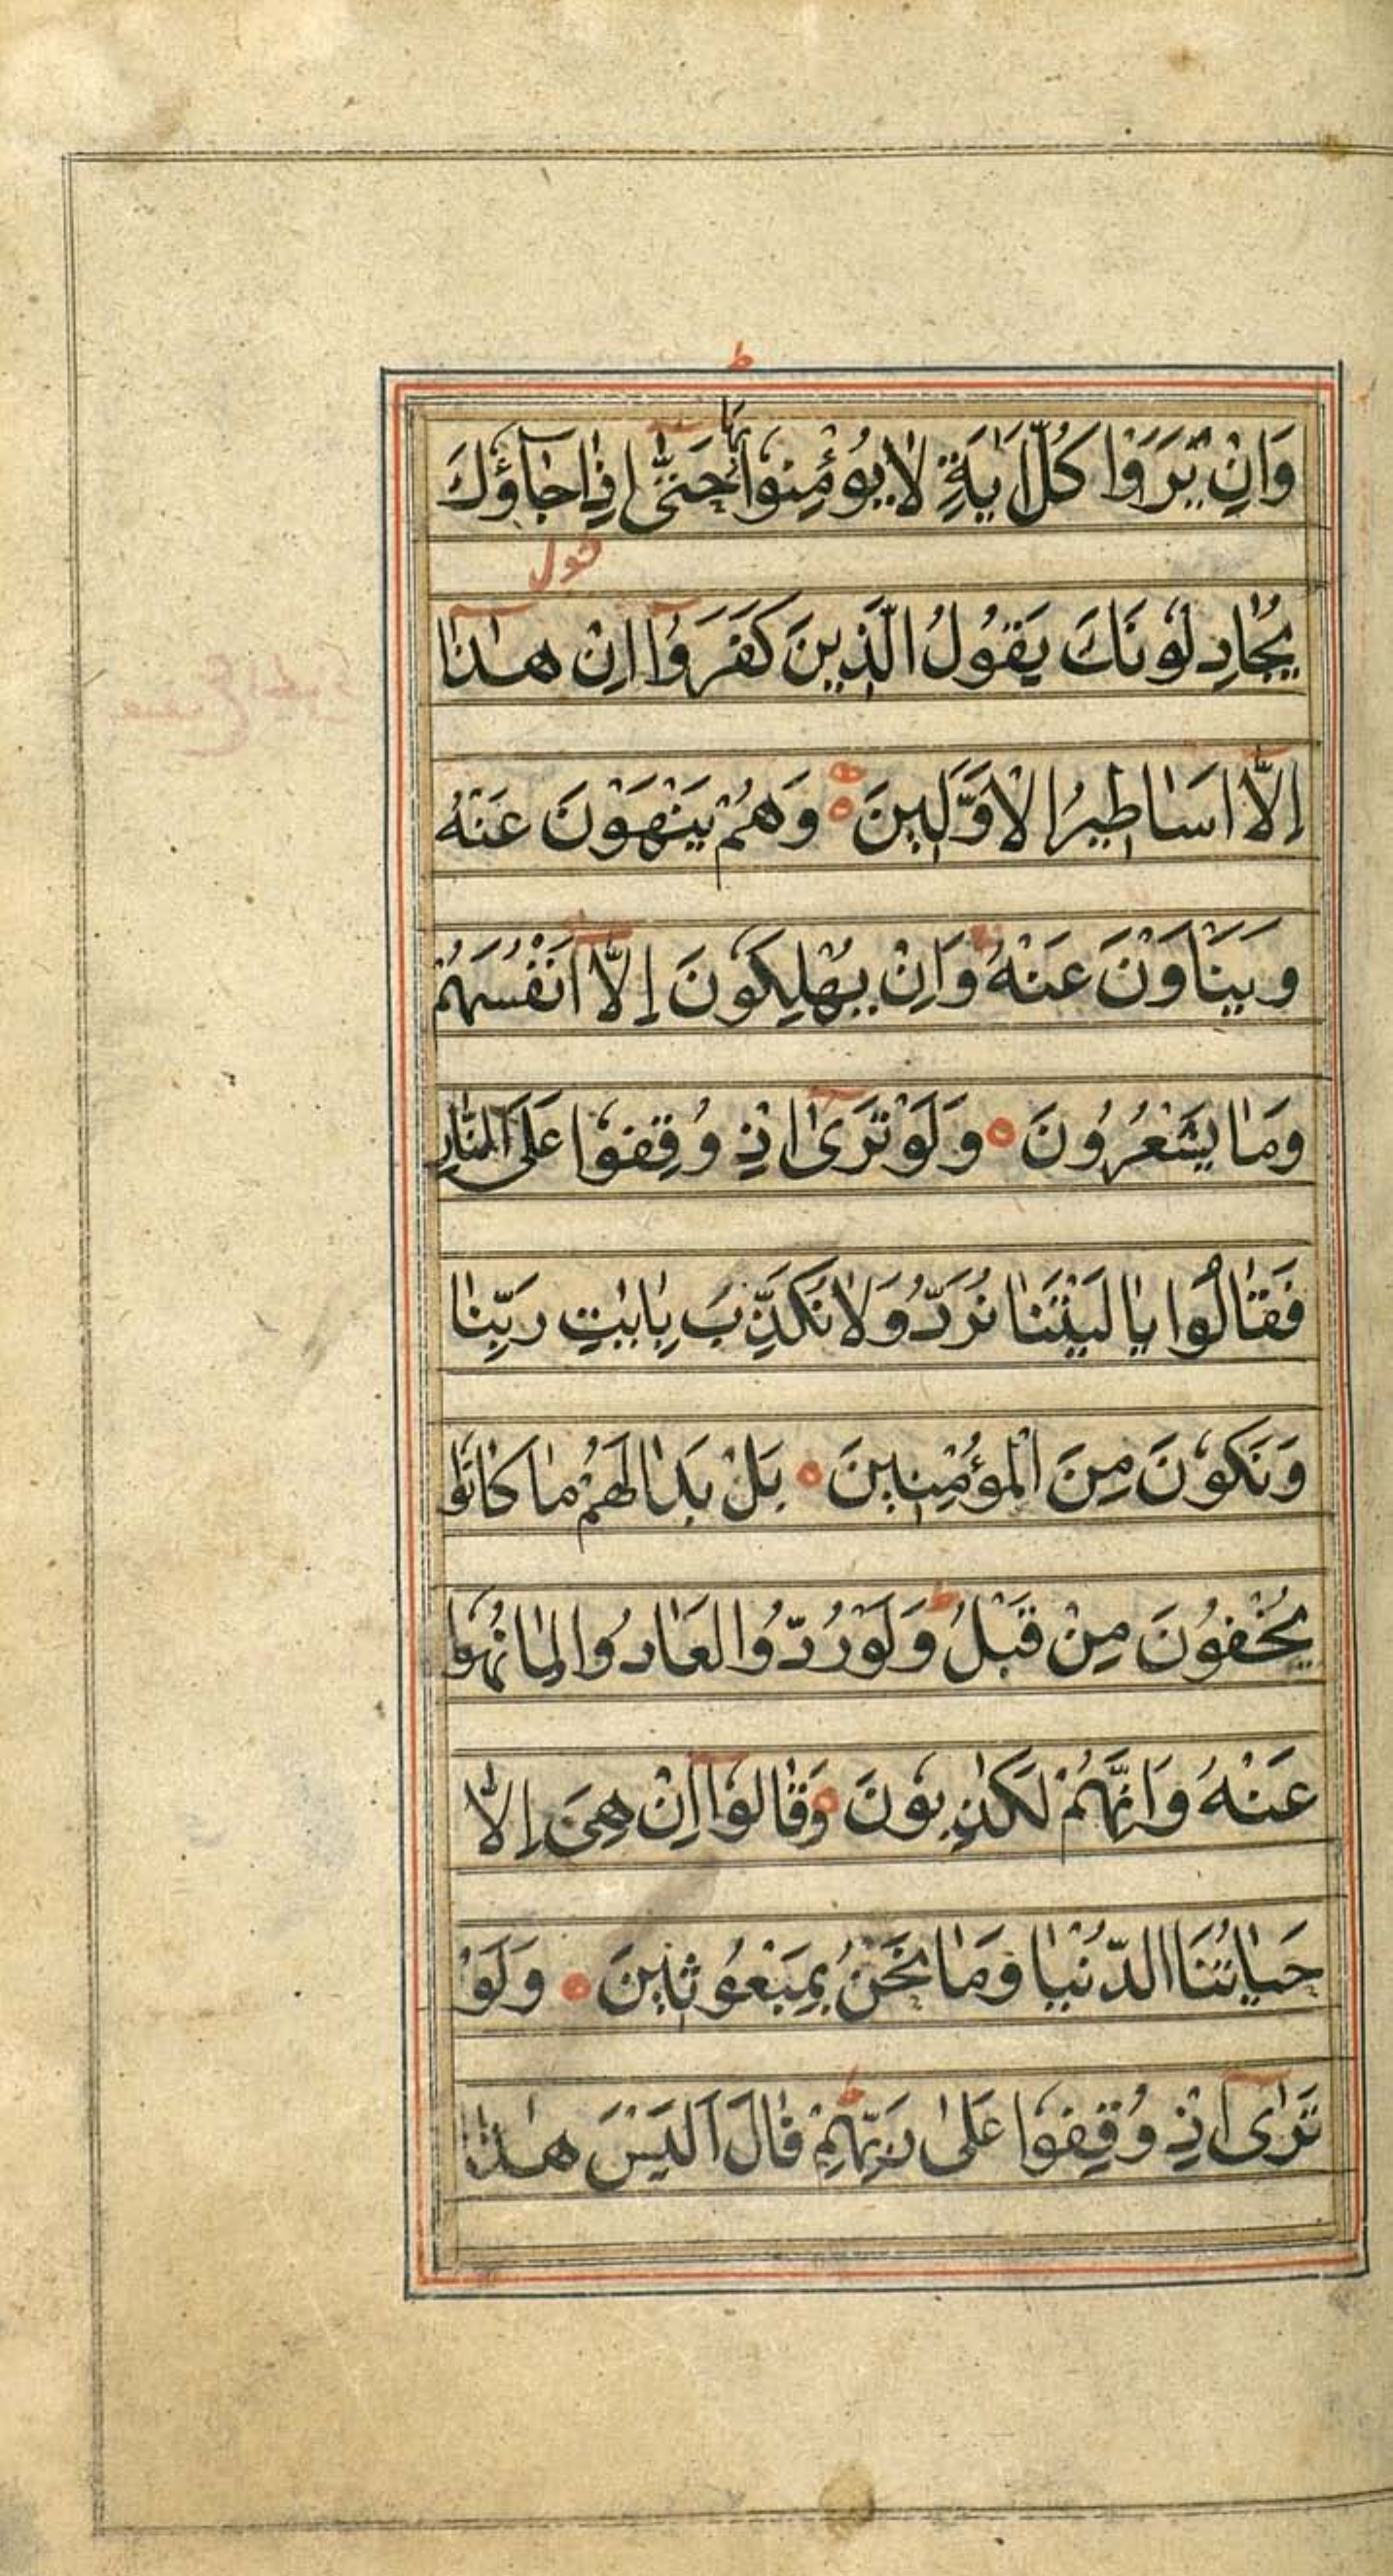 وَاِنْ يَرَوْا كُلَّ اٰيَةٍ لَا يُؤْمِنُوْا بِهَا حَتّٰٓى اِذَا جَآؤُكَ
يُجَادِلُوْنَكَ يَقُوْلُ الَّذِيْنَ كَفَرُوْٓا اِنْ هٰذَٓا
اِلَّآ اَسَاطِيْرُ الْاَوَّلِيْنَ وَهُمْ يَنْهَوْنَ عَنْهُ
وَيَنْاَوْنَ عَنْهُ وَاِنْ يُهْلِكُوْنَ اِلَّآ اَنْفُسَهُمْ
وَمَا يَشْعُرُوْنَ وَلَوْ تَرٰٓى اِذْ وُقِفُوْا عَلَى النَّارِ
فَقَالُوْا يَا لَيْتَنَا نُرَدُّ وَلَا نُكَذِّبَ بِاٰيٰتِ رَبِّنَا
وَنَكُوْنَ مِنَ الْمُؤْمِنِيْنَ بَلْ بَدَا لَهُمْ مَا كَانُوْا
يُخْفُوْنَ مِنْ قَبْلُ ط وَلَوْ رُدُّوْا لَعَادُوْا لِمَا نُهُوْا
عَنْهُ وَاِنَّهُمْ لَكٰذِبُوْنَ وَقَالُوْٓا اِنْ هِيَ اِلَّا
حَيَاتُنَا الدُّنْيَا وَمَا نَحْنُ بِمَبْعُوْثِيْنَ وَلَوْ
تَرٰٓى اِذْ وُقِفُوْا عَلٰى رَبِّهِمْ ط قَالَ اَلَيْسَ هٰذَا